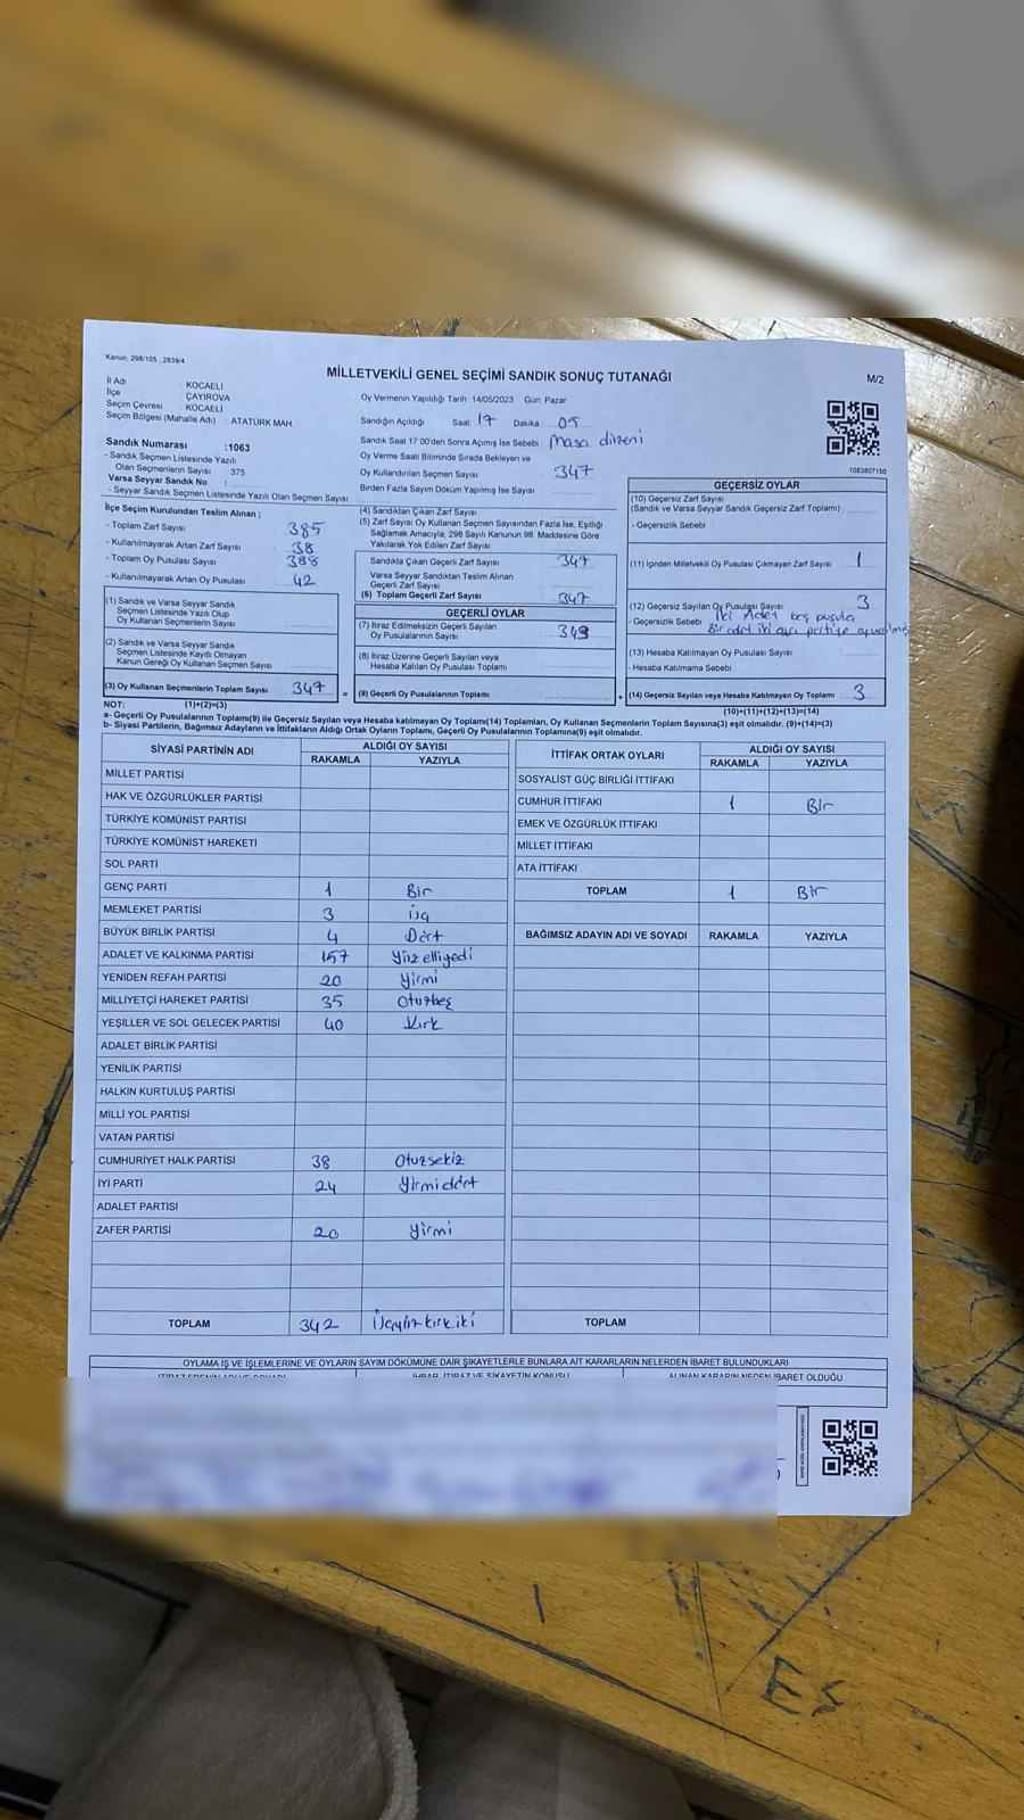 Kanun: 298/105 , 2839/4
MİLLETVEKİLİ GENEL SEÇİMİ SANDIK SONUÇ TUTANAĞI
M/2
İl Adı KOCAELİ
İlçe ÇAYIROVA
Seçim Çevresi KOCAELİ
Seçim Bölgesi (Mahalle Adı) ATATÜRK MAH.
Oy Vermenin Yapıldığı Tarih 14/05/2023 Gün: Pazar
Sandığın Açıldığı Saat: 17 Dakika 05
Sandık Saat 17:00'den Sonra Açılmış İse Sebebi Masa düzeni
Oy Verme Saati Bitiminde Sırada Bekleyen ve
Oy Kullandırılan Seçmen Sayısı 347
Birden Fazla Sayım Döküm Yapılmış İse Sayısı
Sandık Numarası :1063
- Sandık Seçmen Listesinde Yazılı
Olan Seçmenlerin Sayısı 375
Varsa Seyyar Sandık No :
- Seyyar Sandık Seçmen Listesinde Yazılı Olan Seçmen Sayısı
1083807150
İlçe Seçim Kurulundan Teslim Alınan ;
- Toplam Zarf Sayısı 385
- Kullanılmayarak Artan Zarf Sayısı 38
- Toplam Oy Pusulası Sayısı 388
- Kullanılmayarak Artan Oy Pusulası 42
(1) Sandık ve Varsa Seyyar Sandık
Seçmen Listesinde Yazılı Olup
Oy Kullanan Seçmenlerin Sayısı
(2) Sandık ve Varsa Seyyar Sandık
Seçmen Listesinde Kaydı Olmayan
Kanun Gereği Oy Kullanan Seçmen Sayısı
(3) Oy Kullanan Seçmenlerin Toplam Sayısı 347
(4) Sandıktan Çıkan Zarf Sayısı
(5) Zarf Sayısı Oy Kullanan Seçmen Sayısından Fazla İse, Eşitliği
Sağlamak Amacıyla, 298 Sayılı Kanunun 98. Maddesine Göre
Yakılarak Yok Edilen Zarf Sayısı
Sandıkta Çıkan Geçerli Zarf Sayısı 347
Varsa Seyyar Sandıktan Teslim Alınan
Geçerli Zarf Sayısı
(6) Toplam Geçerli Zarf Sayısı 347
GEÇERLİ OYLAR
(7) İtiraz Edilmeksizin Geçerli Sayılan
Oy Pusulalarının Sayısı 343
(8) İtiraz Üzerine Geçerli Sayılan veya
Hesaba Katılan Oy Pusulası Toplamı
= (9) Geçerli Oy Pusulalarının Toplamı
GEÇERSİZ OYLAR
(10) Geçersiz Zarf Sayısı
(Sandık ve Varsa Seyyar Sandık Geçersiz Zarf Toplamı)
- Geçersizlik Sebebi
(11) İçinden Milletvekili Oy Pusulası Çıkmayan Zarf Sayısı 1
(12) Geçersiz Sayılan Oy Pusulası Sayısı 3
- Geçersizlik Sebebi İki Adet boş pusula
Bir adet iki ayrı partiye
(13) Hesaba Katılmayan Oy Pusulası Sayısı
- Hesaba Katılmama Sebebi
+ (14) Geçersiz Sayılan veya Hesaba Katılmayan Oy Toplamı 3
NOT: (1)+(2)=(3)
(10)+(11)+(12)+(13)=(14)
a- Geçerli Oy Pusulalarının Toplamı(9) ile Geçersiz Sayılan veya Hesaba katılmayan Oy Toplamı(14) Toplamları, Oy Kullanan Seçmenlerin Toplam Sayısına(3) eşit olmalıdır. (9)+(14)=(3)
b- Siyasi Partilerin, Bağımsız Adayların ve İttifakların Aldığı Ortak Oyların Toplamı, Geçerli Oy Pusulalarının Toplamına(9) eşit olmalıdır.
SİYASİ PARTİNİN ADI ALDIĞI OY SAYISI
RAKAMLA YAZIYLA
MİLLET PARTİSİ
HAK VE ÖZGÜRLÜKLER PARTİSİ
TÜRKİYE KOMÜNİST PARTİSİ
TÜRKİYE KOMÜNİST HAREKETİ
SOL PARTİ
GENÇ PARTİ 1 Bir
MEMLEKET PARTİSİ 3 üç
BÜYÜK BİRLİK PARTİSİ 4 Dört
ADALET VE KALKINMA PARTİSİ 157 Yüzelliyedi
YENİDEN REFAH PARTİSİ 20 Yirmi
MİLLİYETÇİ HAREKET PARTİSİ 35 Otuzbeş
YEŞİLLER VE SOL GELECEK PARTİSİ 40 Kırk
ADALET BİRLİK PARTİSİ
YENİLİK PARTİSİ
HALKIN KURTULUŞ PARTİSİ
MİLLİ YOL PARTİSİ
VATAN PARTİSİ
CUMHURİYET HALK PARTİSİ 38 Otuzsekiz
İYİ PARTİ 24 Yirmidört
ADALET PARTİSİ
ZAFER PARTİSİ 20 Yirmi
TOPLAM 342 Üçyüzkırkiki
İTTİFAK ORTAK OYLARI ALDIĞI OY SAYISI
RAKAMLA YAZIYLA
SOSYALİST GÜÇ BİRLİĞİ İTTİFAKI
CUMHUR İTTİFAKI 1 Bir
EMEK VE ÖZGÜRLÜK İTTİFAKI
MİLLET İTTİFAKI
ATA İTTİFAKI
TOPLAM 1 Bir
BAĞIMSIZ ADAYIN ADI VE SOYADI RAKAMLA YAZIYLA
TOPLAM
OYLAMA İŞ VE İŞLEMLERİNE VE OYLARIN SAYIM DÖKÜMÜNE DAİR ŞİKAYETLERLE BUNLARA AİT KARARLARIN NELERDEN İBARET BULUNDUKLARI
İHBAR, İTİRAZ VE ŞİKAYETİN KONUSU ALINAN KARARIN NEDEN İBARET OLDUĞU
ES